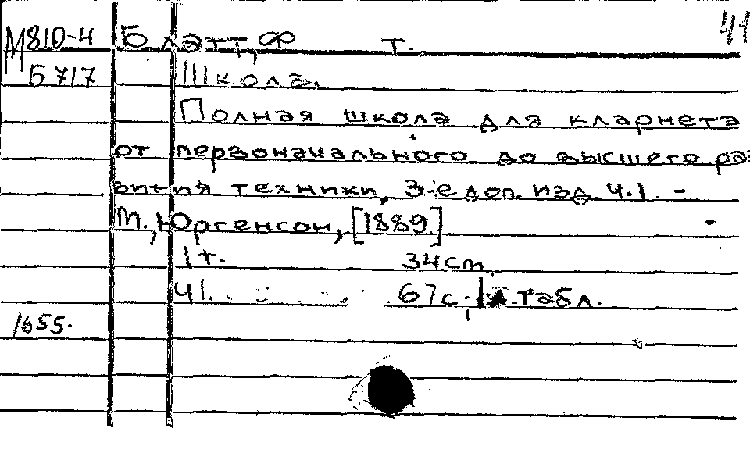 М810-4 Блатт, Ф т. 41
Б717 Школа.
Полная школа для кларнета
от первоначального до высшего раз
вития техники, 3-е доп. изд. Ч.1. -
М., Юргенсон, [1889.]
1 т. 34 cm.
Ч1. 67 с., 1 л. табл.
1655.